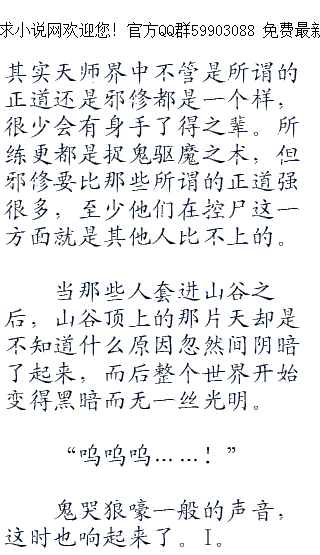 求小说网欢迎您！官方QQ群59903088 免费最新
其实天师界中不管是所谓的
正道还是邪修都是一个样，
很少会有身手了得之辈。所
练更都是捉鬼驱魔之术，但
邪修要比那些所谓的正道强
很多，至少他们在控尸这一
方面就是其他人比不上的。
当那些人套进山谷之
后，山谷顶上的那片天却是
不知道什么原因忽然间阴暗
了起来，而后整个世界开始
变得黑暗而无一丝光明。
“呜呜呜……！”
鬼哭狼嚎一般的声音，
这时也响起来了。I。